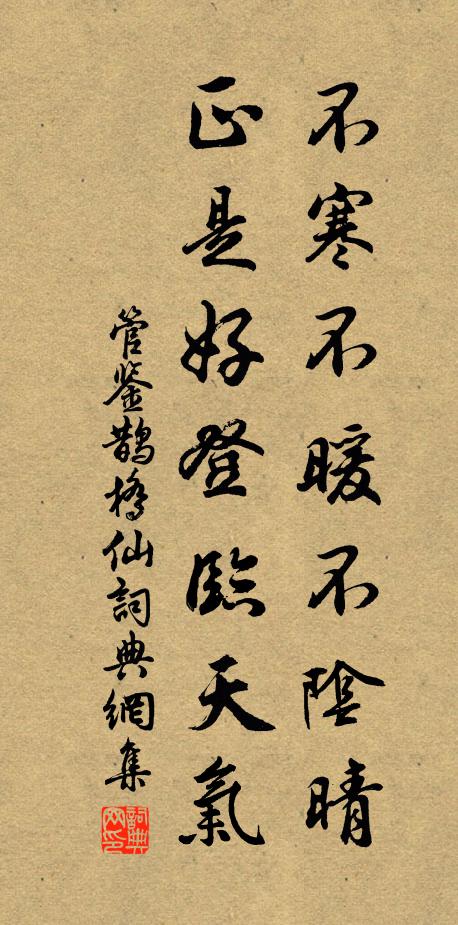 不寒不暖不陰晴
正是好登臨天氣
管鉴鵲橋仙詞典網集
詞典網印